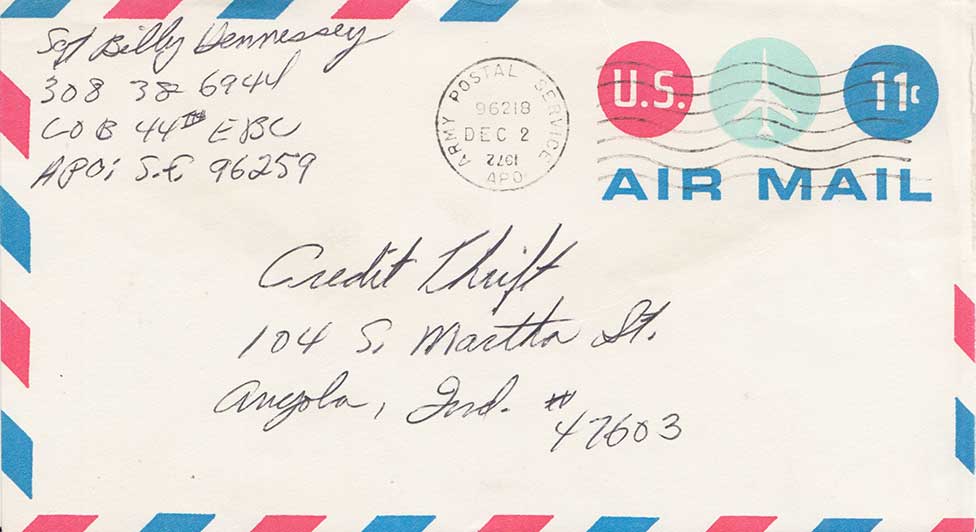 Sgt Billy Hennessey
308 38 6944
CO B 44th EBC
APO; S.F. 96259
ARMY POSTAL SERVICE
96218
DEC 2
1972
APO
U.S.
11c
AIR MAIL
Credit Thrift
104 S. Martha St.
Angola, Ind. #
47603